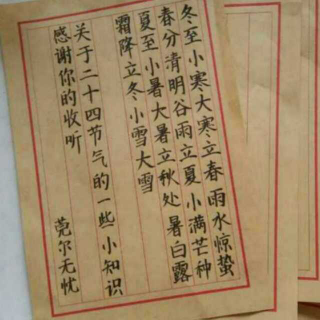 冬至小寒大寒立春雨水惊蛰
春分清明谷雨立夏小满芒种
夏至小暑大暑立秋处暑白露
霜降立冬小雪大雪
关于二十四节气的一些小知识
感谢你的收听 莞尔无忧